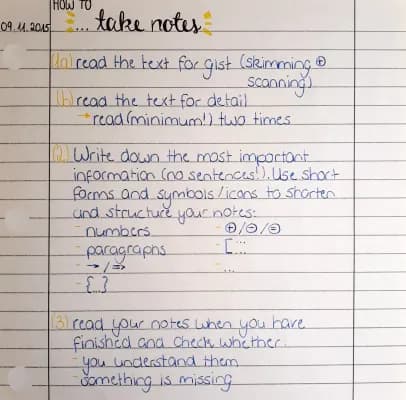 HOW TO
09.11.2015
... take notes
(1a) read the text for gist (skimming ⊕
scanning)
(b) read the text for detail
→ read (minimum!) two times
(2) Write down the most important
information (no sentences!). Use short
forms and symbols/icons to shorten
and structure your notes:
- numbers - ⊕/⊖/⊜
- paragraphs - [...
- → / ⇒ - ...
- {..}
(3) read your notes when you have
finished and check whether:
- you understand them
- something is missing